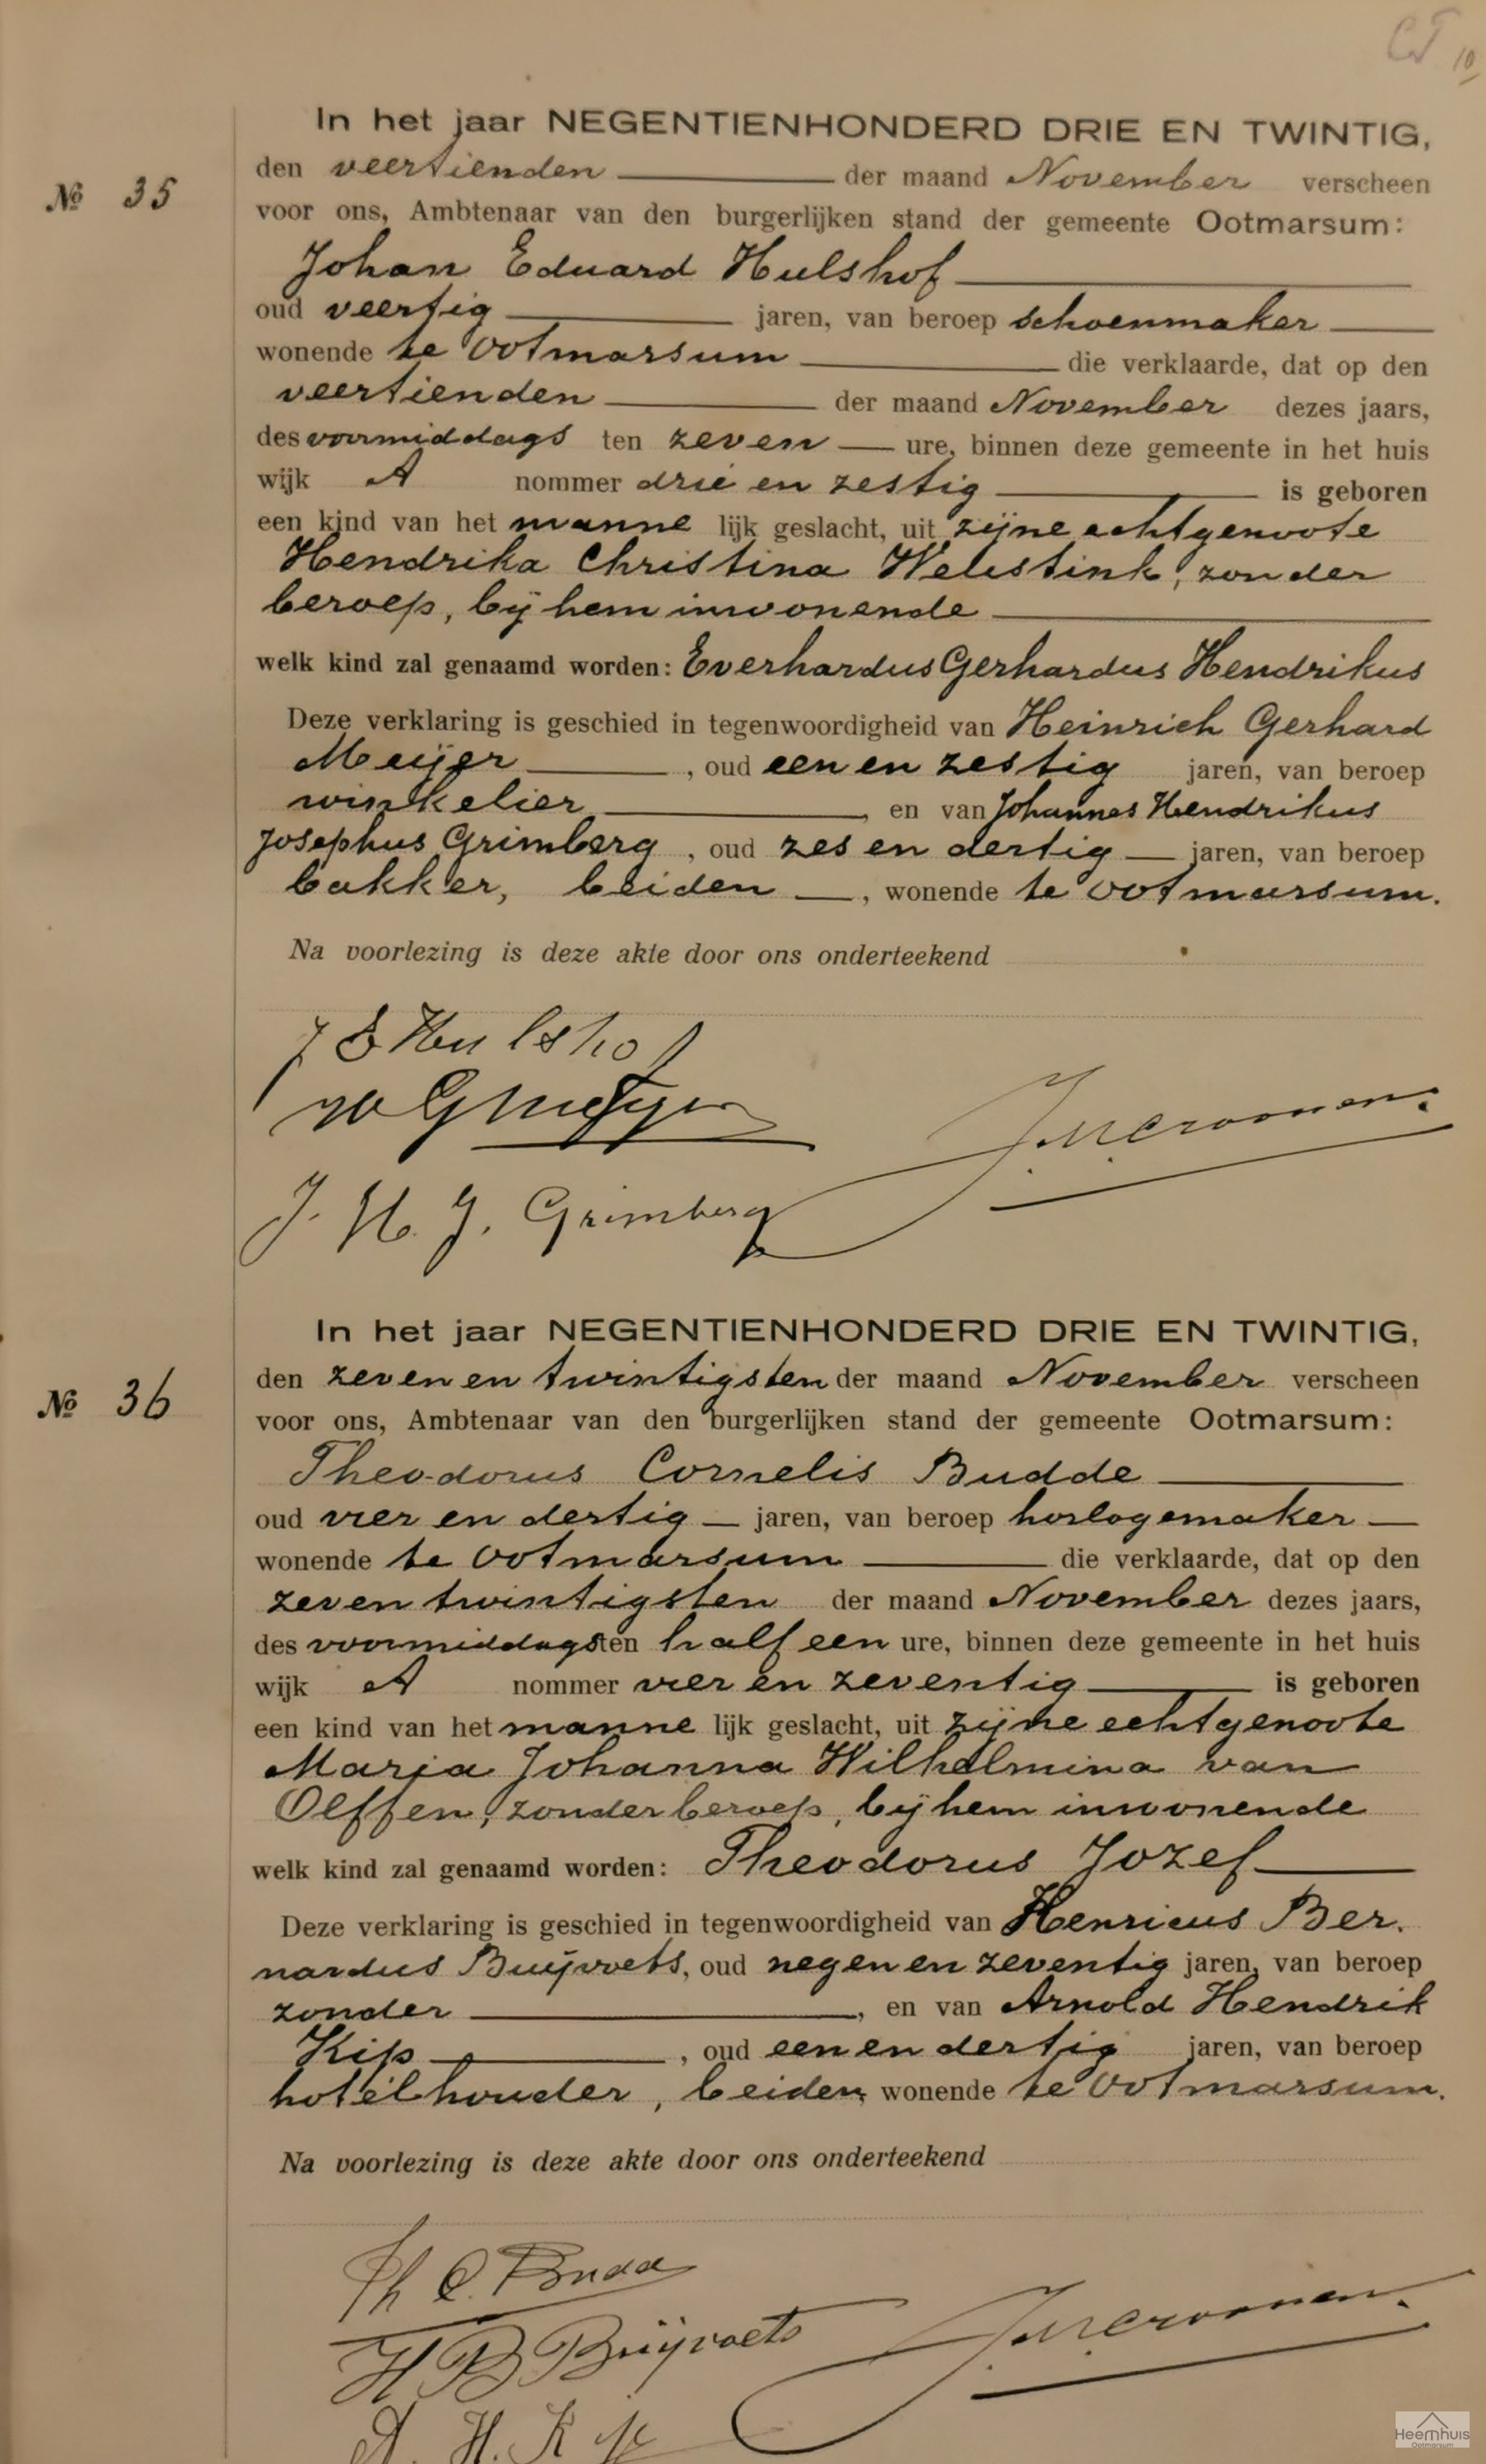 10
In het jaar NEGENTIENHONDERD DRIE EN TWINTIG,
den veertienden der maand November verscheen
№ 35
voor ons, Ambtenaar van den burgerlijken stand der gemeente Ootmarsum:
Johan Eduard Hulshof
oud veertig jaren, van beroep schoenmaker
wonende te Ootmarsum die verklaarde, dat op den
veertienden der maand November dezes jaars,
des voormiddags ten zeven ure, binnen deze gemeente in het huis
wijk A nommer drie en zestig is geboren
een kind van het manne lijk geslacht, uit zijne echtgenoote
Hendrika Christina Welestink, zonder
beroep, bij hem inwonende
welk kind zal genaamd worden: Everhardus Gerhardus Hendrikus
Deze verklaring is geschied in tegenwoordigheid van Heinrich Gerhard
Meijer, oud een en zestig jaren, van beroep
winkelier, en van Johannes Hendrikus
Josephus Grimberg, oud zes en dertig jaren, van beroep
bakker, beiden, wonende te Ootmarsum.
Na voorlezing is deze akte door ons onderteekend
J E Hulshof
J. H. J. Grimberg
In het jaar NEGENTIENHONDERD DRIE EN TWINTIG,
den zeven en twintigsten der maand November verscheen
№ 36
voor ons, Ambtenaar van den burgerlijken stand der gemeente Ootmarsum:
Theodorus Cornelis Budde
oud vier en dertig jaren, van beroep horlogemaker
wonende te Ootmarsum die verklaarde, dat op den
zeven twintigsten der maand November dezes jaars,
des voormiddags ten half een ure, binnen deze gemeente in het huis
wijk A nommer vier en zeventig is geboren
een kind van het manne lijk geslacht, uit zijne echtgenoote
Maria Johanna Wilhelmina van
Olffen, zonder beroep, bij hem inwonende
welk kind zal genaamd worden: Theodorus Jozef
Deze verklaring is geschied in tegenwoordigheid van Henricus Ber-
nardus Buijvoets, oud negen en zeventig jaren, van beroep
zonder, en van Arnold Hendrik
Kip, oud een en dertig jaren, van beroep
hotelhouder, beiden, wonende te Ootmarsum.
Na voorlezing is deze akte door ons onderteekend
Th C. Budde
H B Buijvoets
A. H. Kip
Heemhuis
Ootmarsum